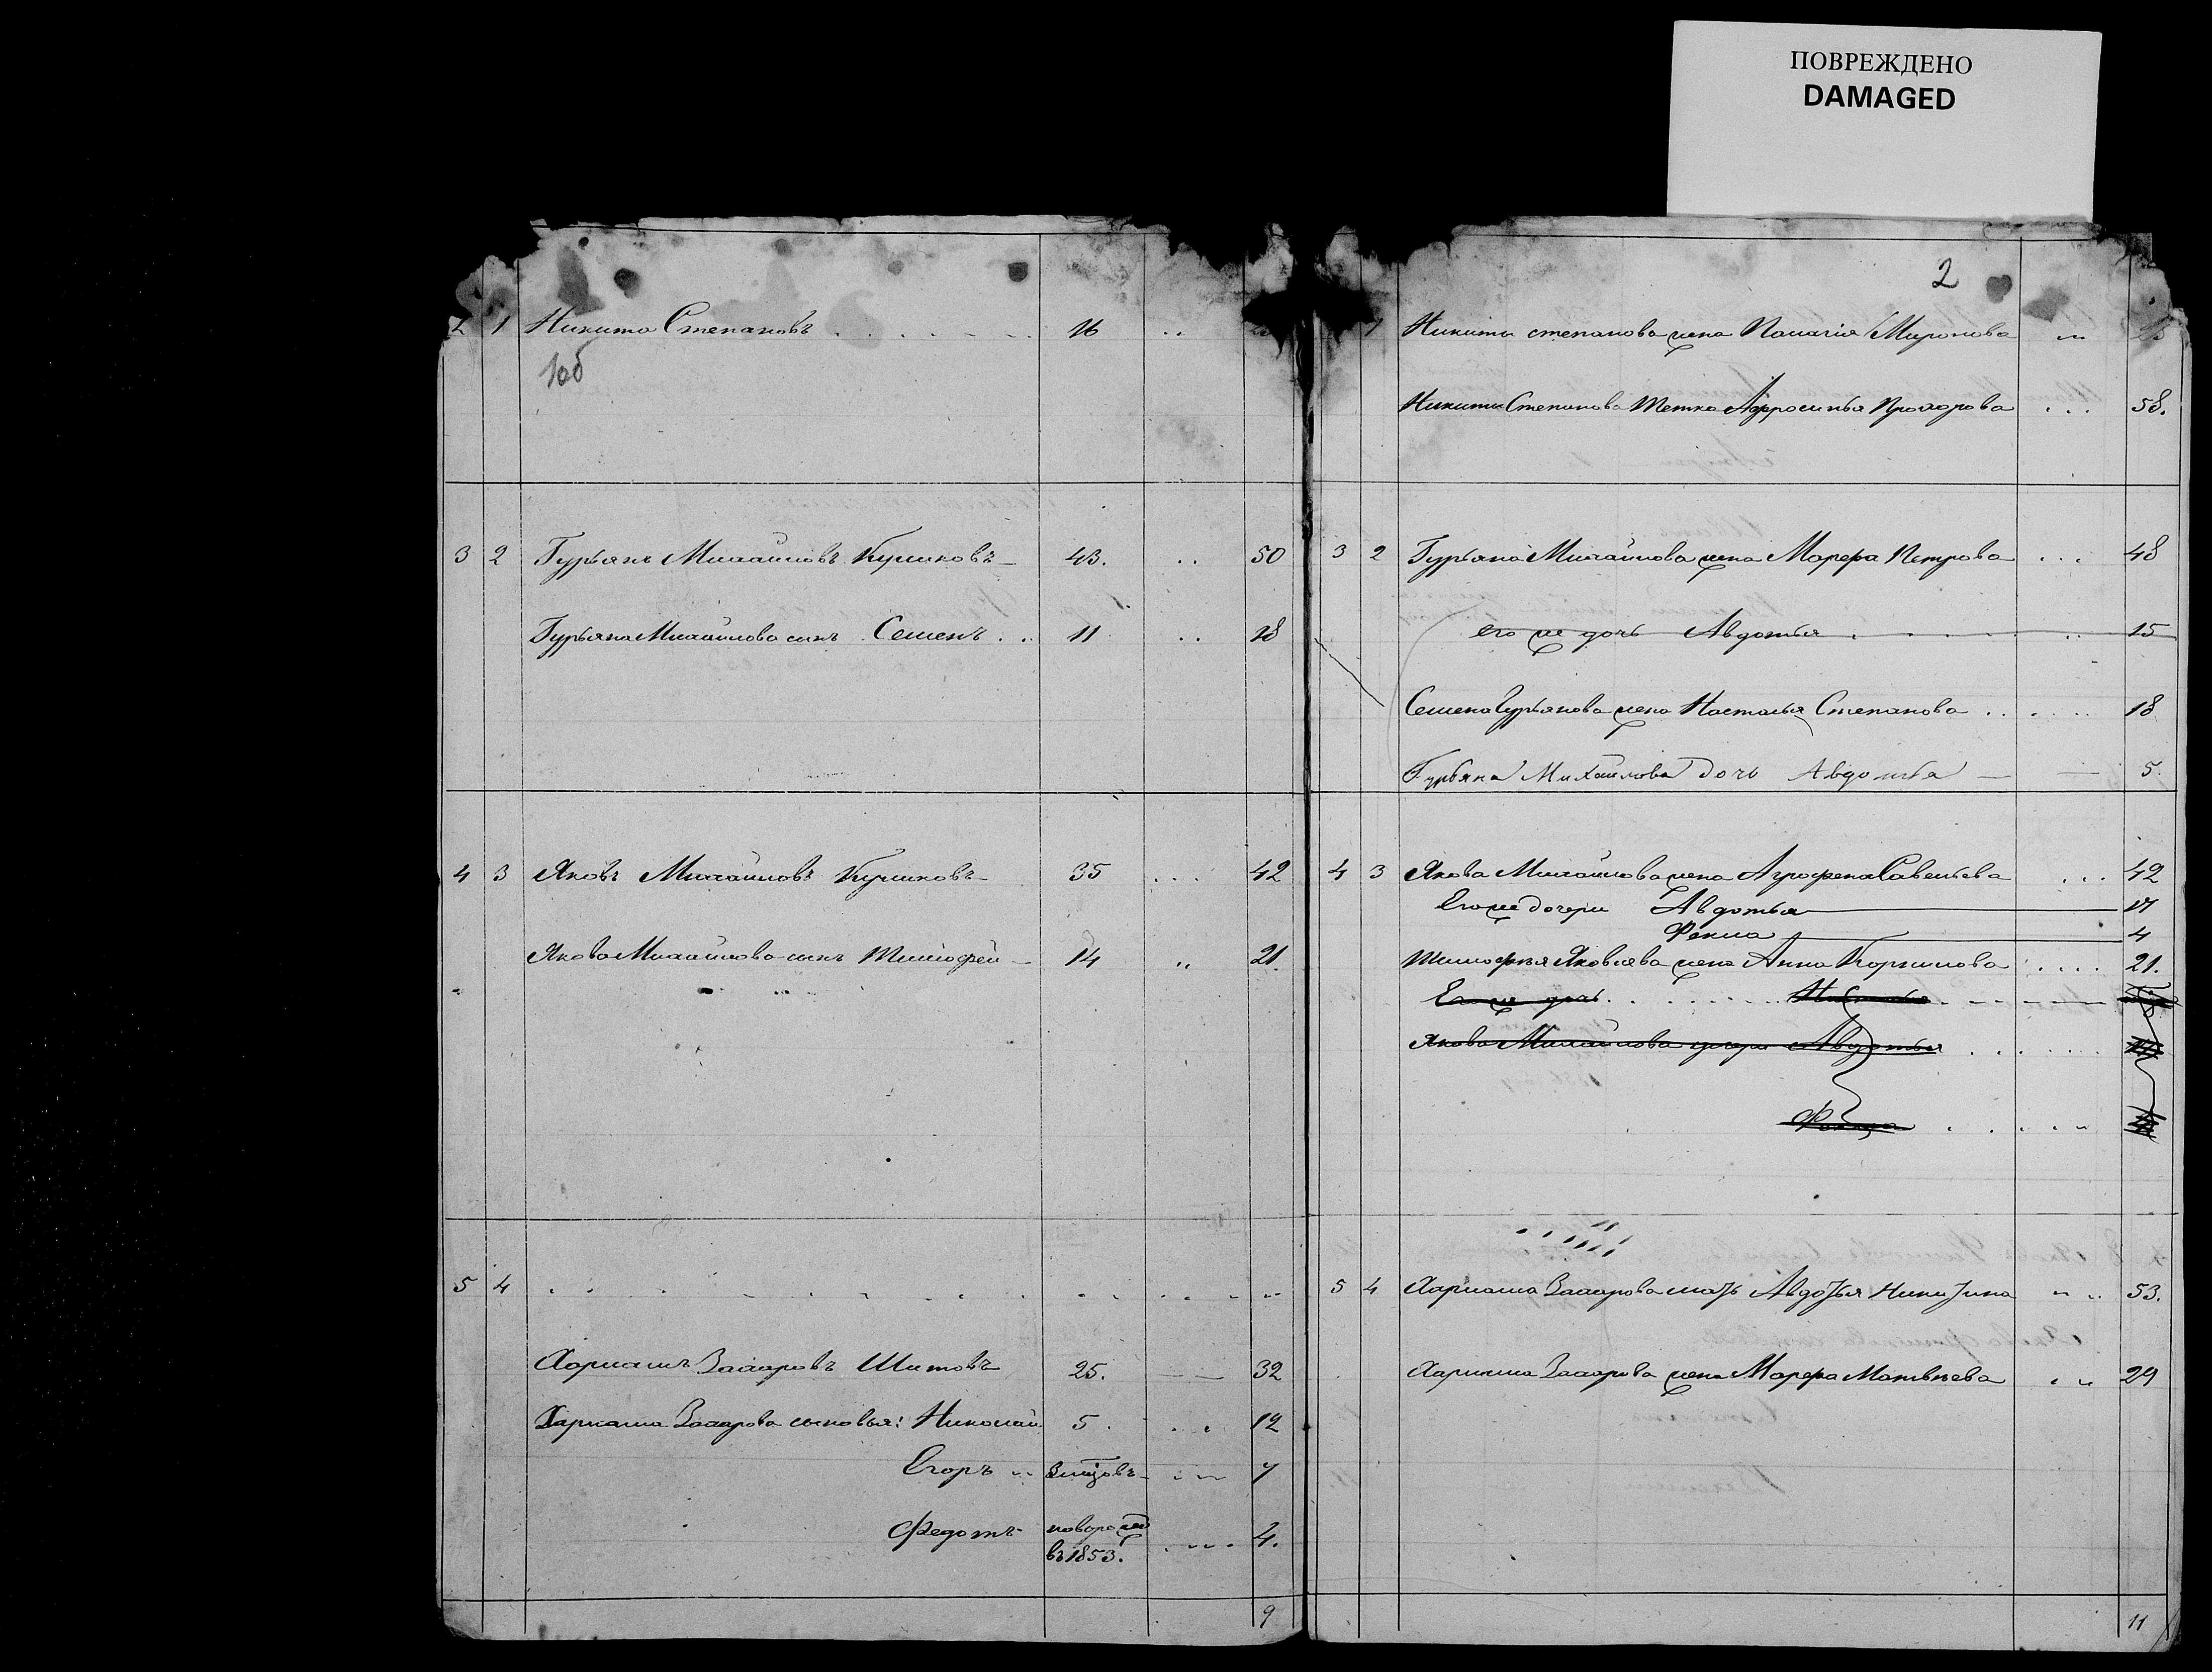 ПОВРЕЖДЕНО
DAMAGED
2 1 Никита Степановъ 16
1об
3 2 Гурьянъ Михайловъ Куликовъ 43. 50
Гурьяна Михайлова сынъ Семенъ 11 18
4 3 Яковъ Михайловъ Куликовъ 35 42
Якова Михайлова сынъ Тимофей 14 21.
5 4
Харлампъ Захаровъ Шитовъ 25. 32
Харлампа Захарова сыновья: Николай 5. 12
Егоръ 7
Федотъ новорожд 4.
въ 1853.
9
2
1 Никиты Степанова жена Палагія Миронова
Никиты Степанова тетка Афросинья Прохорова 58.
3 2 Гурьяна Михайлова жена Марфа Петрова 48
его же дочь Авдотья 15
Семена Гурьянова жена Насталья Степанова 18
Гурьяна Михайлова дочь Авдотья 5.
4 3 Якова Михайлова жена Агрофена Савельева 42
Его же дочери Авдотья 17
Фекла 4
Тимофея Яковлева жена Анна Корнилова 21.
Его же дочь
Якова Михайлова дочери Авдотья
Фекла
5 4 Харлама Захарова мать Авдотья Никитина 53.
Харлама Захарова жена Марфа Матвѣева 29
11